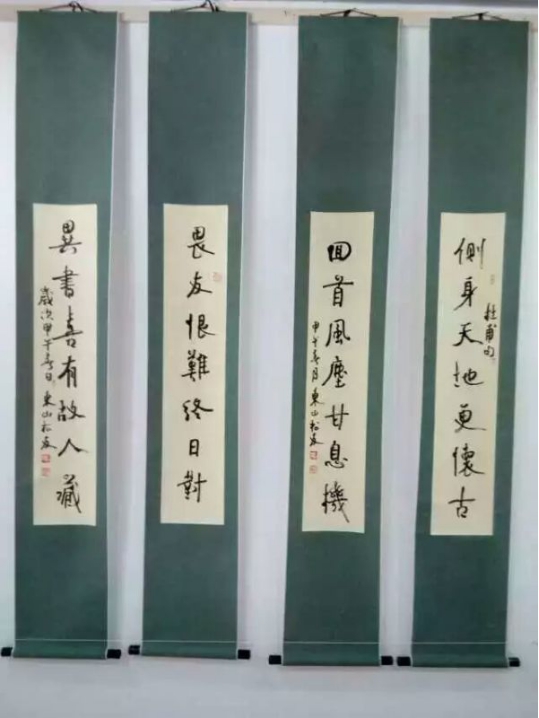 側身天地更懷古
杜甫句
囬首風塵甘息機
甲午春月東山松友
畏友恨難終日對
異書喜有故人藏
歲次甲午春日東山松友